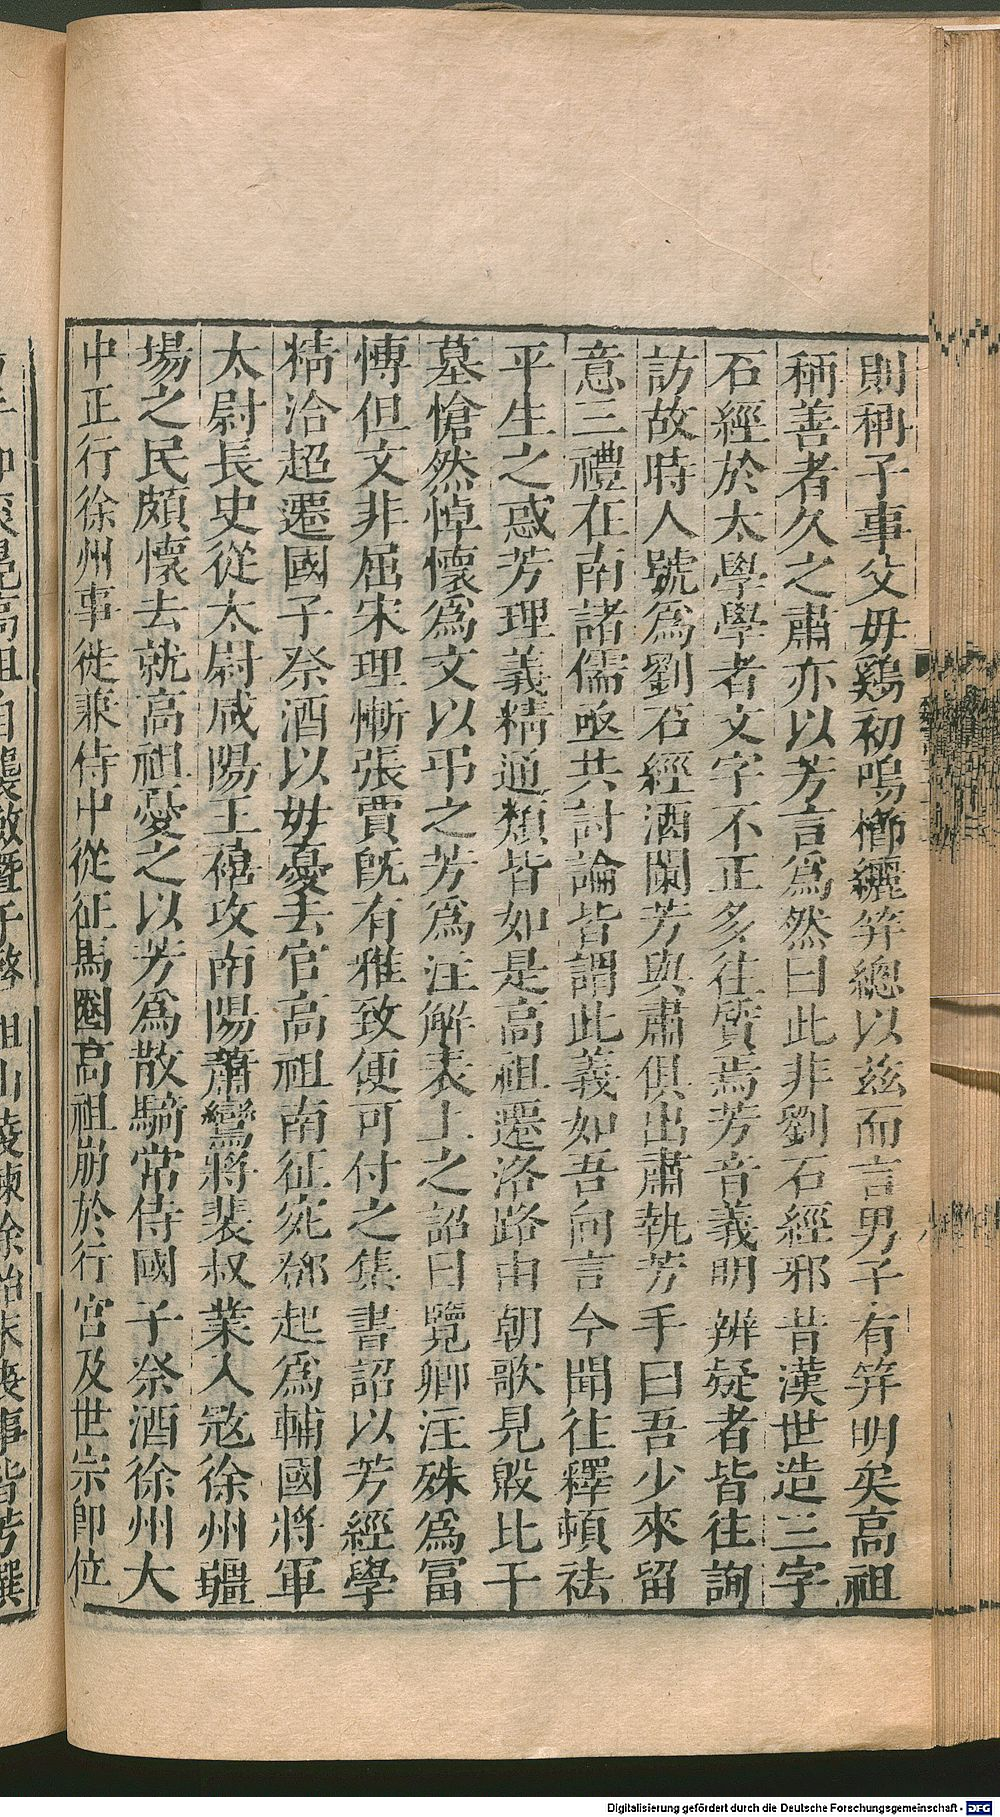 則稱子事父毋鷄初鳴櫛纚笄總以茲而言男子有笄明矣高祖
稱善者久之肅亦以芳言爲然曰此非劉石經邪昔漢世造三字
石經於太學學者文字不正多往質焉芳音義明辨疑者皆往詢
訪故時人號爲劉石經酒闌芳與肅俱出肅執芳手曰吾少來留
意三禮在南諸儒亟共討論皆謂此義如吾向言今聞往釋頓祛
平生之惑芳理義精通類皆如是高祖遷洛路由朝歌見殷比干
墓愴然悼懷爲文以弔之芳爲注解表上之詔曰覽卿注殊爲富
博但文非屈宋理慚張賈旣有雅致便可付之集書詔以芳經學
精洽超遷國子祭酒以毋憂去官高祖南征宛鄧起爲輔國將軍
太尉長史從太尉咸陽王禧攻南陽蕭鸞將裴叔業入寇徐州疆
場之民頗懷去就高祖憂之以芳爲散騎常侍國子祭酒徐州大
中正行徐州事徙兼侍中從征馬圈高祖崩於行宮及世宗卽位
高祖自襲斂暨于啓祖山陵練除始末喪事皆芳撰
Digitalisierung gefördert durch die Deutsche Forschungsgemeinschaft - DFG